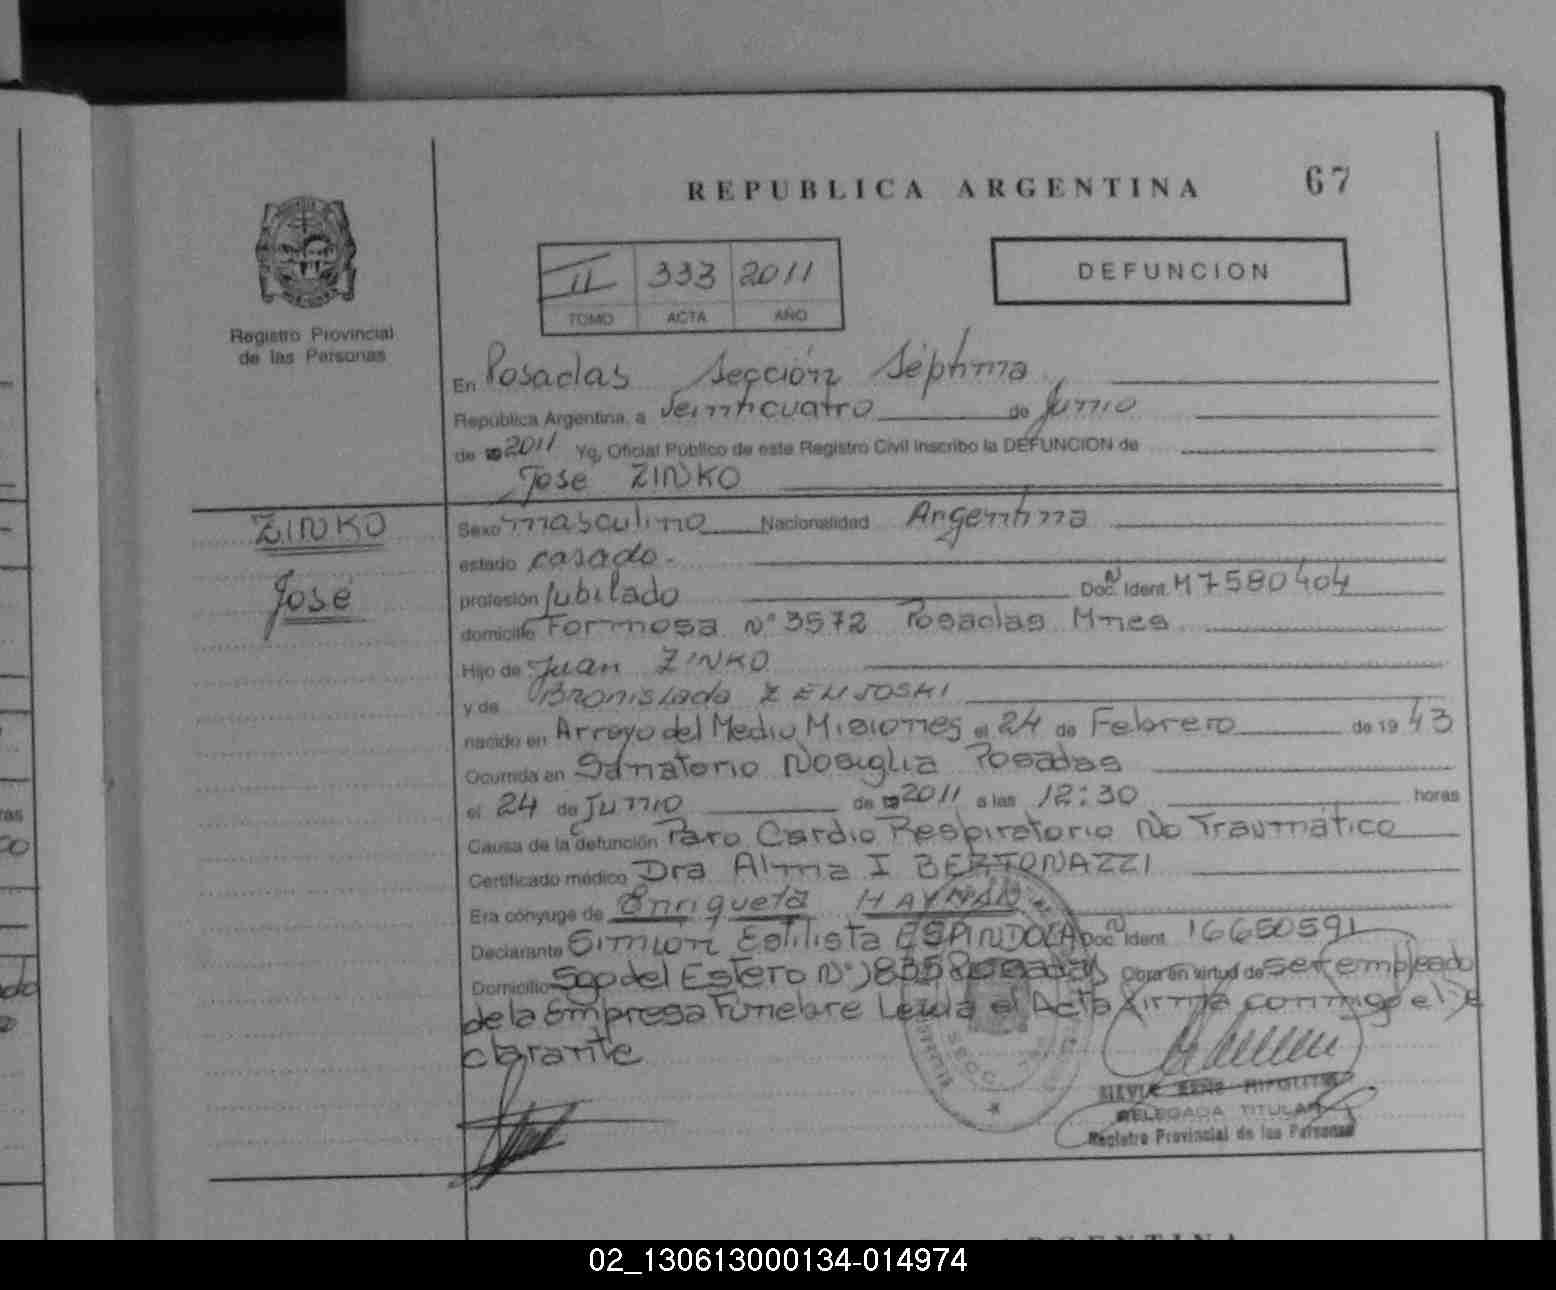 REPUBLICA ARGENTINA 67
II 333 2011
TOMO ACTA AÑO
DEFUNCION
Registro Provincial
de las Personas
En Posadas Sección Séptima
República Argentina, a Veinticuatro de Junio
de 2011 Yo, Oficial Público de este Registro Civil inscribo la DEFUNCION de
Jose ZINKO
ZINKO
José
Sexo masculino Nacionalidad Argentina
estado casado.-
profesión Jubilado Doc. N Ident. M7580404
domicilio Formosa Nº 3572 Posadas Mnes
Hijo de Juan ZINKO
y de Bronislada
nacido en Arroyo del Medio Misiones el 24 de Febrero de 19 43
Ocurrida en Sanatorio Nosiglia Posadas
el 24 de Junio de 2011 a las 12:30 horas
Causa de la defunción Paro Cardio Respiratorio No Traumático
Certificado médico Dra Alma I BERTONAZZI
Era cónyuge de Enriqueta
Declarante ESPINDOLA Doc. N Ident. 16650591
Domicilio Sgo del Estero Nº Posadas Obra en virtud de ser empleado
de la Empresa Funebre Leida el Acta firma conmigo el De
clarante
DELEGADA TITULAR
Registro Provincial de las Personas
ARGENTINA
02_130613000134-014974